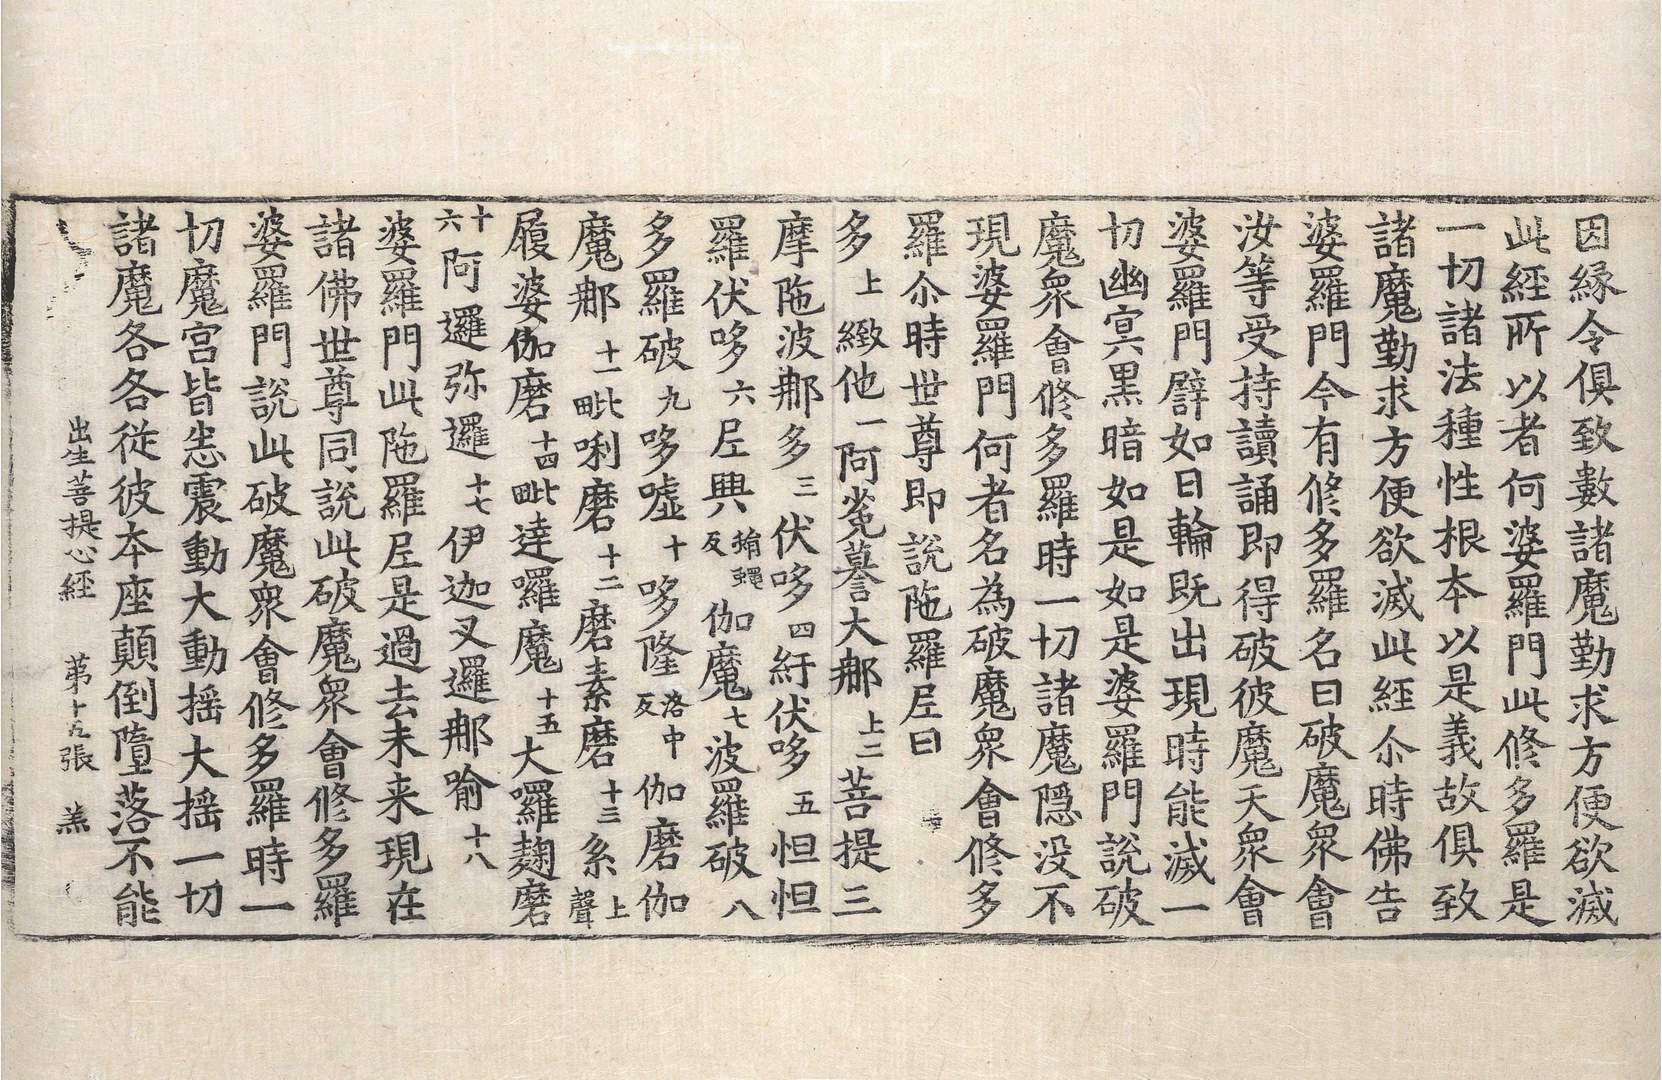 因縁令俱致數諸魔勤求方便欲滅
此經所以者何婆羅門此修多羅是
一切諸法種性根本以是義故俱致
諸魔勤求方便欲滅此經尒時佛告
婆羅門今有修多羅名曰破魔衆會
汝等受持讀誦即得破彼魔天衆會
婆羅門譬如日輪既出現時能滅一
切幽冥黑暗如是如是婆羅門說破
魔衆會修多羅時一切諸魔隱没不
現婆羅門何者名為破魔衆會修多
羅尒時世尊即說陁羅尼曰
多上緻他一阿㝹蓦大郍上二菩提三
摩陁波郍多三伏哆四紆伏哆五怛怛
羅伏哆六尼興蝇反伽魔七波羅破八
多羅破九哆嘘十哆隆洛中反伽磨伽
魔郍十一毗唎磨十二磨素磨十三系上聲
履婆伽磨十四毗達囉魔十五大囉麹磨
十六阿邏弥邏十七伊迦叉邏郍喻十八
婆羅門此陁羅尼是過去未来現在
諸佛世尊同說此破魔衆會修多羅
婆羅門說此破魔衆會修多羅時一
切魔宮皆悉震動大動摇大摇一切
諸魔各各従彼本座顛倒墮落不能
出生菩提心經 苐十五張 羔